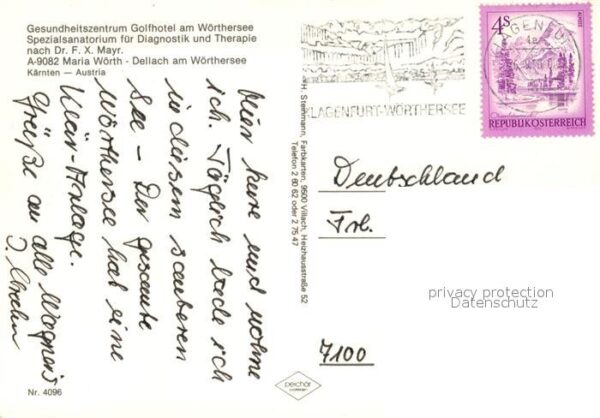 Gesundheitszentrum Golfhotel am Wörthersee
Spezialsanatorium für Diagnostik und Therapie
nach Dr. F. X. Mayr.
A-9082 Maria Wörth - Dellach am Wörthersee
Kärnten — Austria
kure und wohne
ich. Täglich bade ich
in diesem sauberen
See - Der gesamte
Wörthersee hat eine
Klär-Anlage.
Grüße an alle Wagners
Nr. 4096
H. Steinmann, Farbkarten, 9500 Villach, Heizhausstraße 52
Telefon 2 60 62 oder 2 75 47
KLAGENFURT-WÖRTHERSEE
4S
ALMSEE
REPUBLIK ÖSTERREICH
Deutschland
7100
privacy protection
Datenschutz